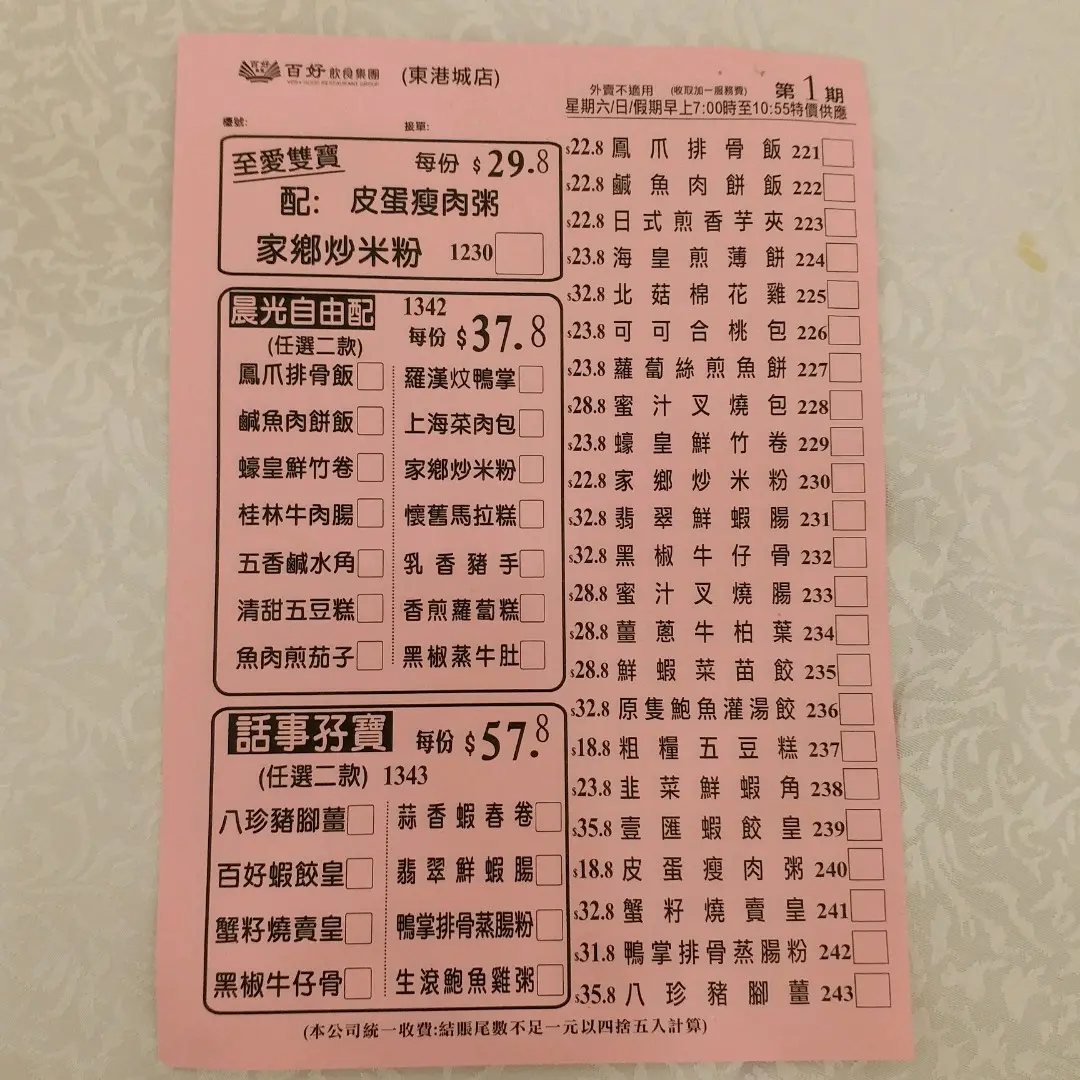 百好 飲食集團 (東港城店)
外賣不適用 (收取加一服務費) 第1期
星期六/日/假期早上7:00時至10:55特價供應
檯號: 接單:
至愛雙寶 每份 $29.8
配: 皮蛋瘦肉粥
家鄉炒米粉 1230
晨光自由配 1342
(任選二款) 每份 $37.8
鳳爪排骨飯 羅漢炆鴨掌
鹹魚肉餅飯 上海菜肉包
蠔皇鮮竹卷 家鄉炒米粉
桂林牛肉腸 懷舊馬拉糕
五香鹹水角 乳香豬手
清甜五豆糕 香煎蘿蔔糕
魚肉煎茄子 黑椒蒸牛肚
話事孖寶 每份 $57.8
(任選二款) 1343
八珍豬腳薑 蒜香蝦春卷
百好蝦餃皇 翡翠鮮蝦腸
蟹籽燒賣皇 鴨掌排骨蒸腸粉
黑椒牛仔骨 生滾鮑魚雞粥
$22.8 鳳爪排骨飯 221
$22.8 鹹魚肉餅飯 222
$22.8 日式煎香芋夾 223
$23.8 海皇煎薄餅 224
$32.8 北菇棉花雞 225
$23.8 可可合桃包 226
$23.8 蘿蔔絲煎魚餅 227
$28.8 蜜汁叉燒包 228
$23.8 蠔皇鮮竹卷 229
$22.8 家鄉炒米粉 230
$32.8 翡翠鮮蝦腸 231
$32.8 黑椒牛仔骨 232
$28.8 蜜汁叉燒腸 233
$28.8 薑蔥牛柏葉 234
$28.8 鮮蝦菜苗餃 235
$32.8 原隻鮑魚灌湯餃 236
$18.8 粗糧五豆糕 237
$23.8 韭菜鮮蝦角 238
$35.8 壹匯蝦餃皇 239
$18.8 皮蛋瘦肉粥 240
$32.8 蟹籽燒賣皇 241
$31.8 鴨掌排骨蒸腸粉 242
$35.8 八珍豬腳薑 243
(本公司統一收費:結賬尾數不足一元以四捨五入計算)